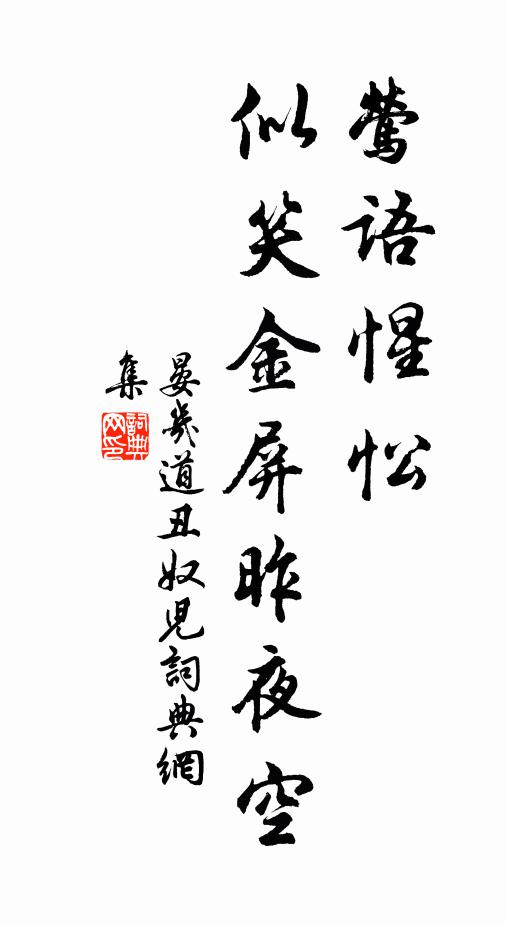 鶯語惺忪
似笑金屏昨夜空
晏幾道丑奴兒詞典網
集
詞典网印